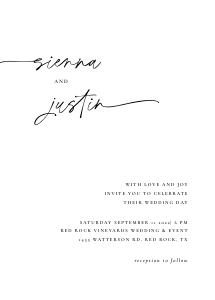 sienna
AND
justin
WITH LOVE AND JOY
INVITE YOU TO CELEBRATE
THEIR WEDDING DAY
SATURDAY SEPTEMBER 11 2024| 6 PM
RED ROCK VINEYARDS WEDDING & EVENT
1435 WATTERSON RD, RED ROCK, TX
reception to follow